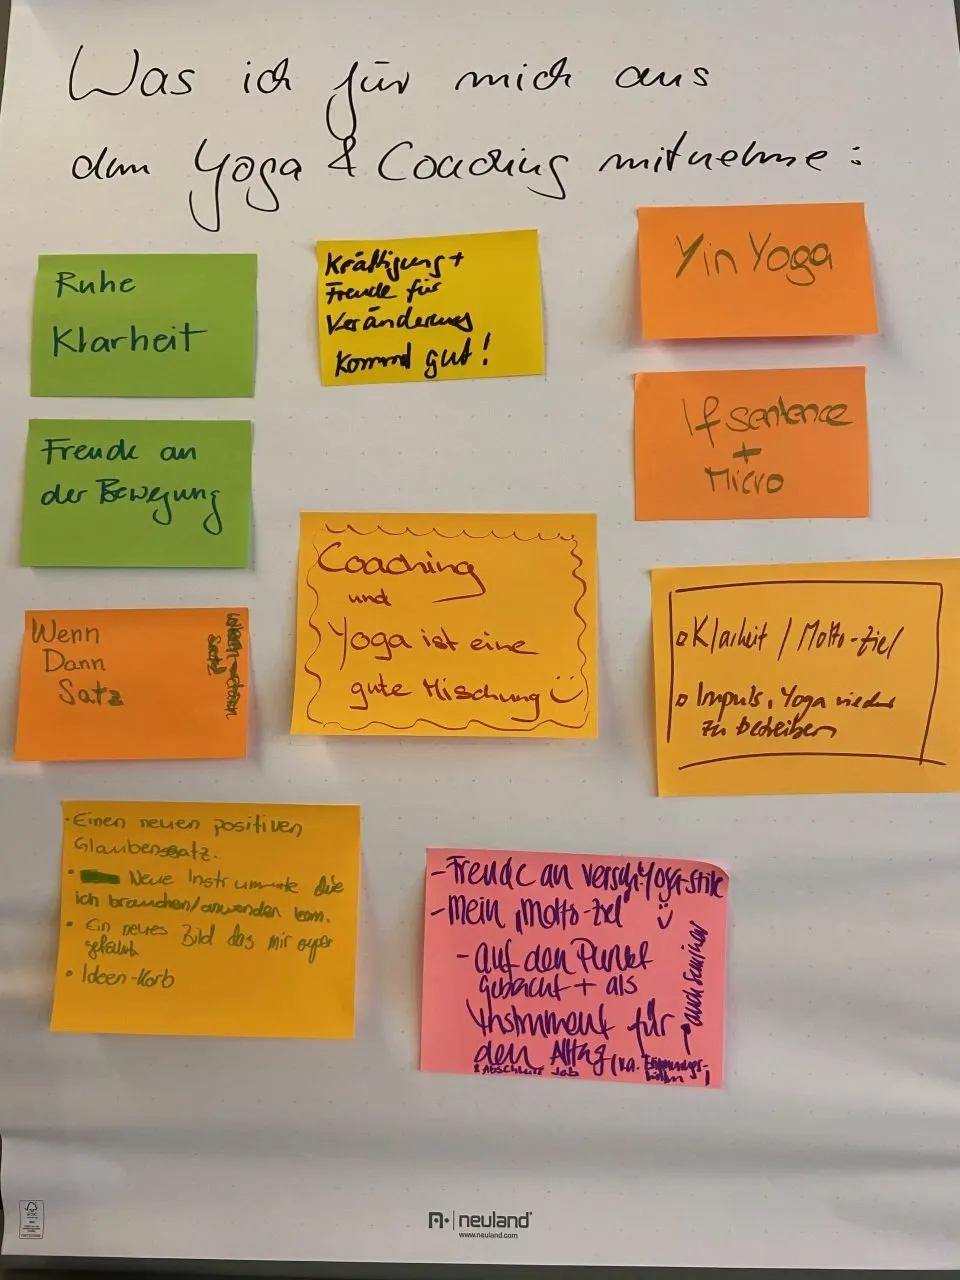 Was ich für mich aus
dem Yoga & Coaching mitnehme:
Ruhe
Klarheit
Kräftigung +
Freude für
Veränderung
kommt gut!
Yin Yoga
Freude an
der Bewegung
If sentence
+
Micro
Coaching
und
Yoga ist eine
gute Mischung
Wenn
Dann
Satz
Satz
Klarheit / Motto-ziel
Impuls, Yoga wieder
zu betreiben
• Einen neuen positiven
Glaubenssatz.
• Neue Instrumente die
ich brauchen/anwenden kann.
• Ein neues Bild das mir super
gefällt
• Ideen-Korb
- Freude an versch. Yoga-Stile
- Mein "Motto-ziel"
- auf den Punkt
gebracht + als
Instrument für
den Alltag (v.a. Erinnerungs-
& Abschluss Job
auch Seminar
neuland
www.neuland.com
FSC